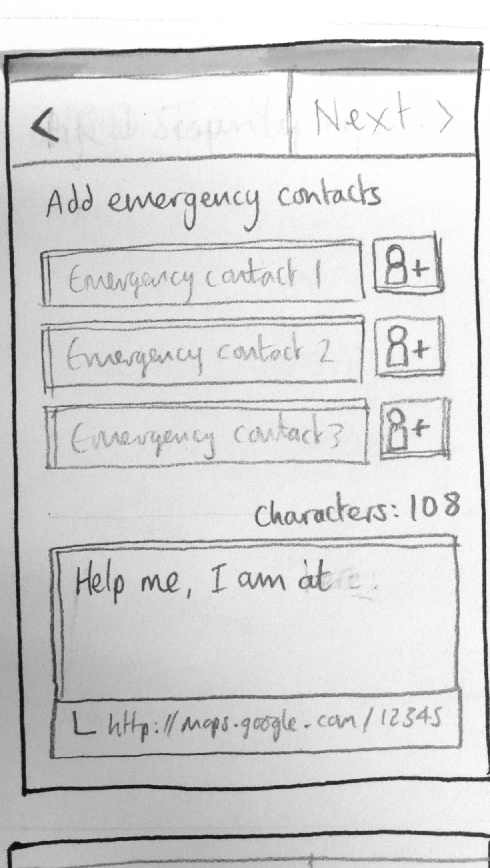 < Next >
Add emergency contacts
Emergency contact 1
Emergency contact 2
Emergency contact 3
Characters: 108
Help me, I am at
http://maps.google.com/12345